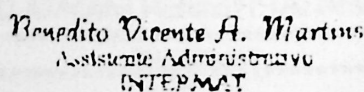 Benedito Vicente A. Martins
Assistente Administrativo
INTERMAT